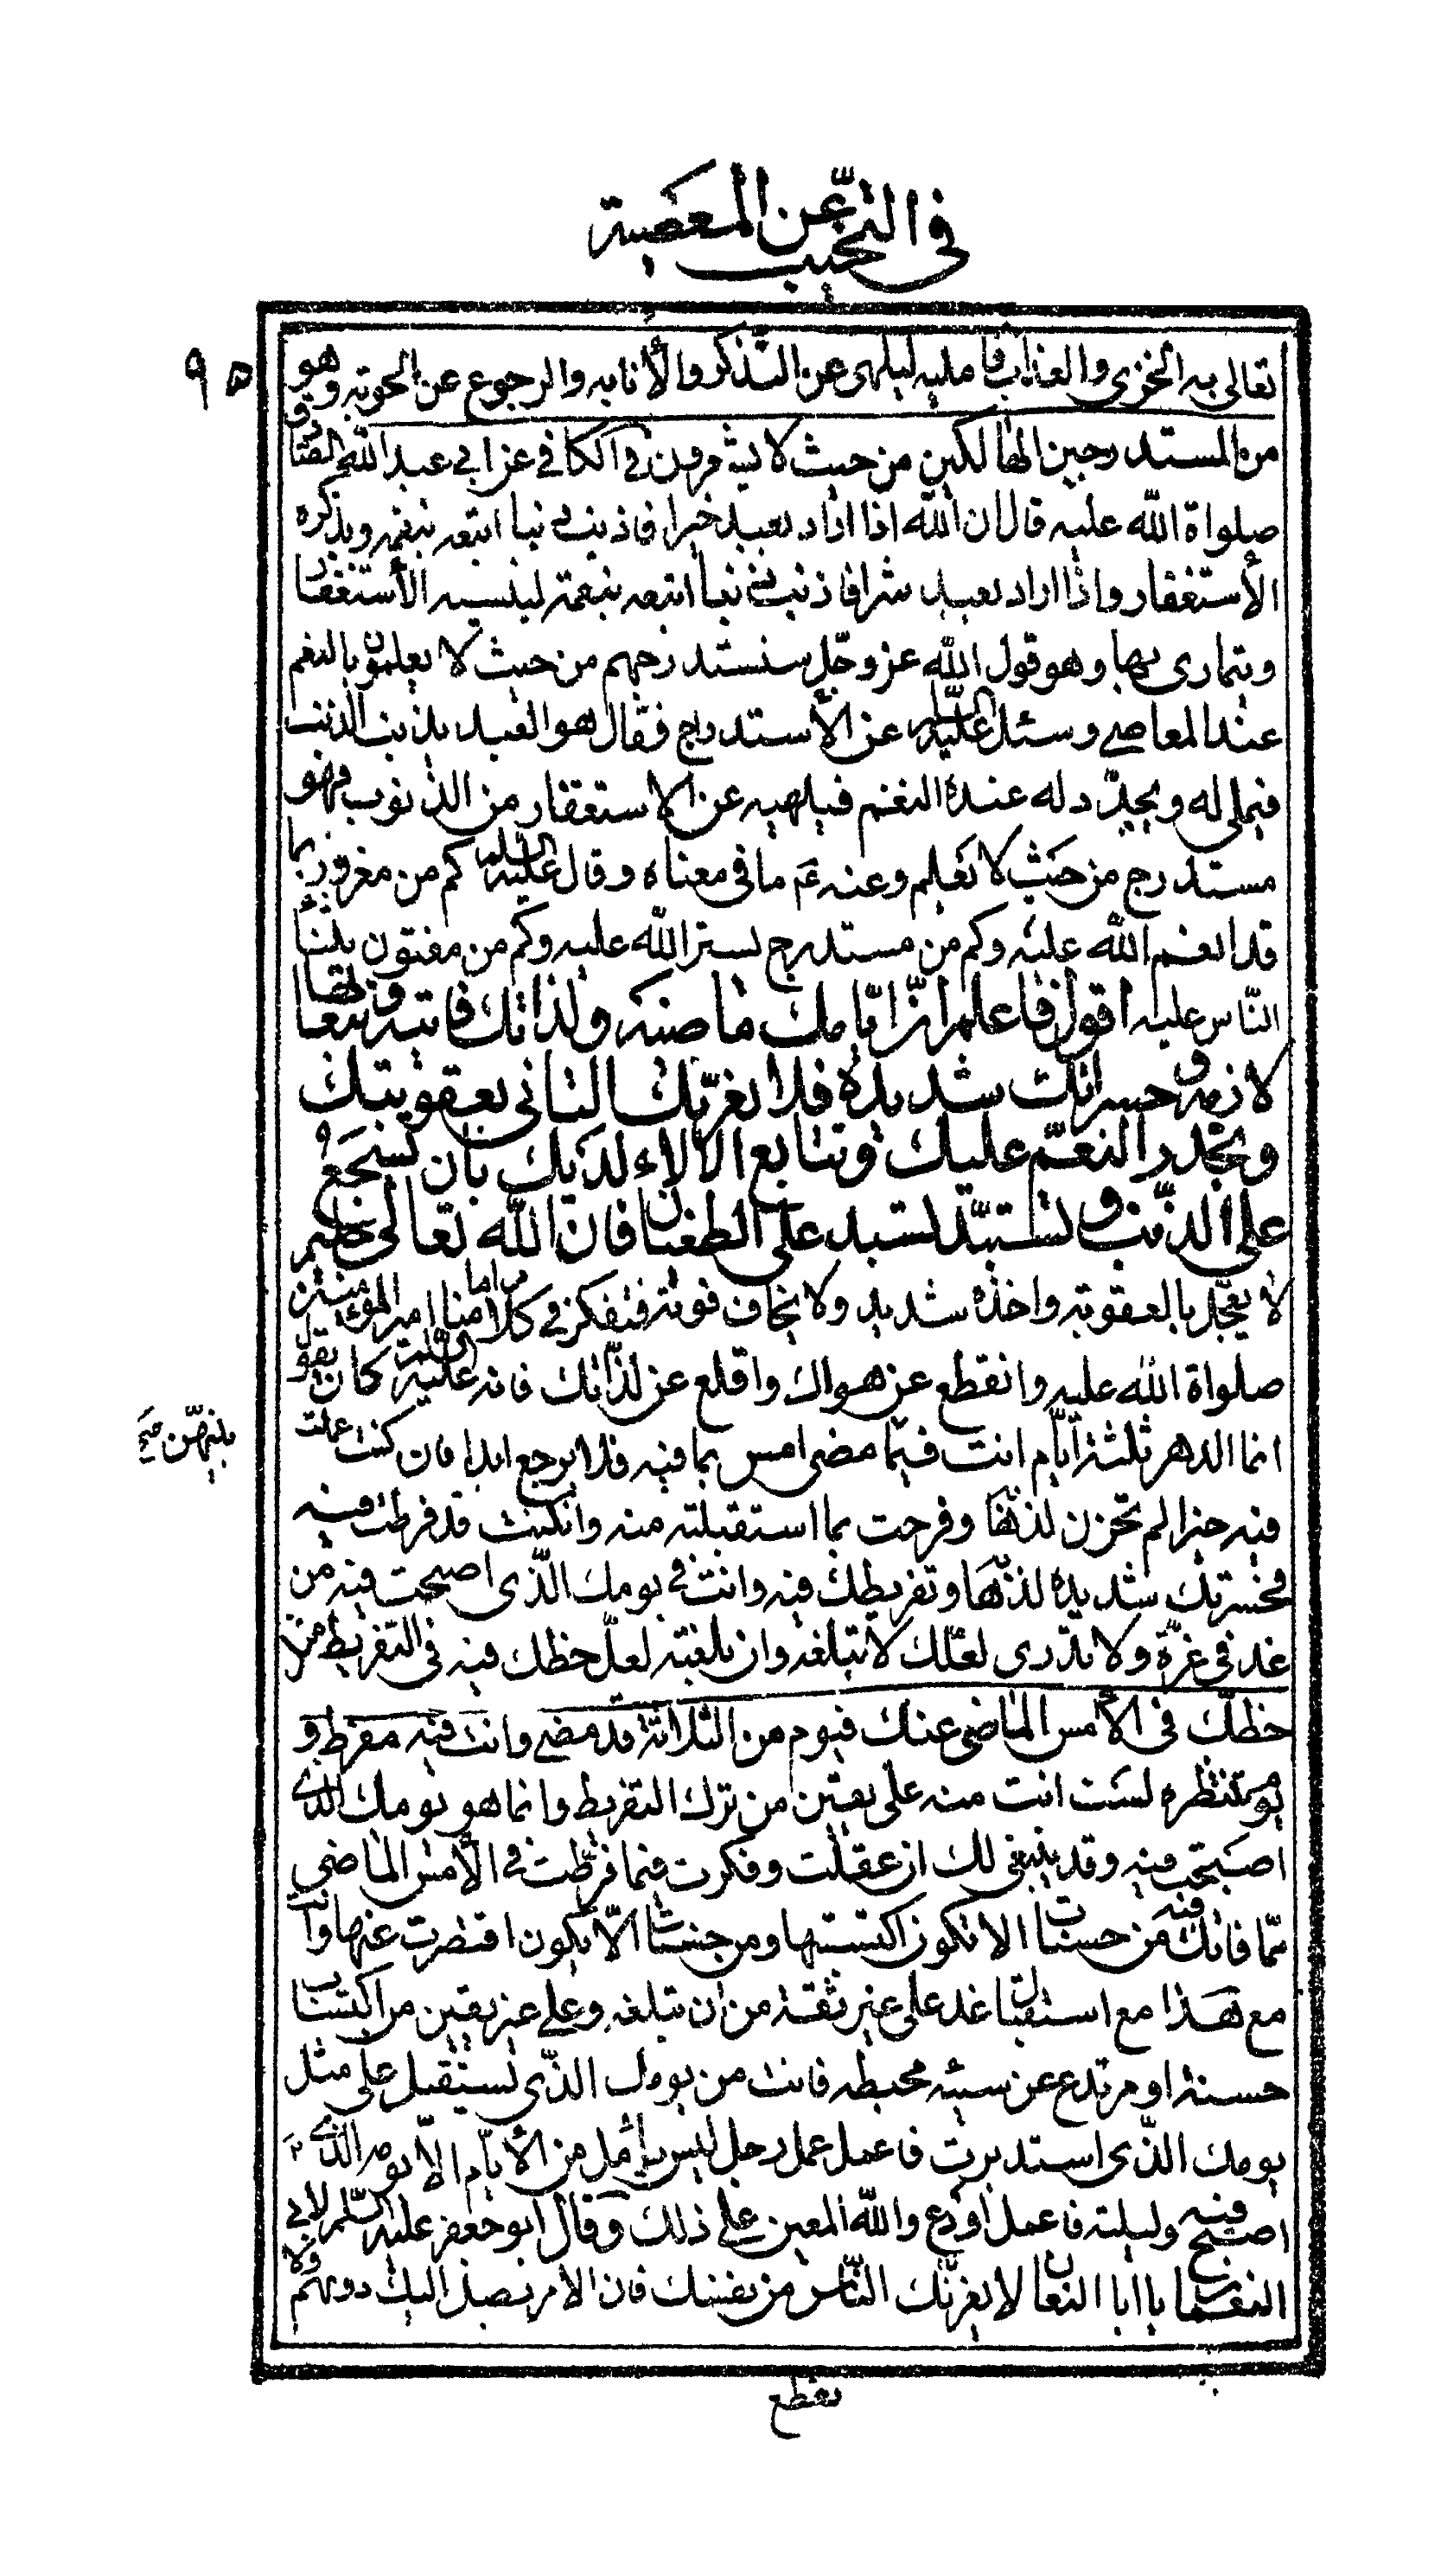 في التجنب عن المعصية
٩٥
تعالى به الخزى والعذاب فامليه ليلهى عن التذكر والأنابه والرجوع عن الحوبه وهو
من المستدرجين الهالكين من حيث لا يشعرون في الكافي عن ابي عبد الله الصادق
صلواة الله عليه قال ان الله اذا اراد بعبد خيرا فاذنب ذنبا اتبعه بنقمه ويذكره
الأستغفار واذا اراد بعبد شرا فاذنب ذنبا اتبعه بنعمة لينسيه الأستغفار
ويتمارى بها وهو قول الله عز وجل سنستدرجهم من حيث لا يعلمون بالنعم
عند المعاصي وسئل عليه السلام عن الأستدراج فقال هو العبد يذنب الذنب
فيملى له ويجدد له عنده النعم فيلهيه عن الاستغفار من الذنوب فهو
مستدرج من حيث لا يعلم وعنه عم ما فى معناه وقال عليه السلام كم من مغرور بما
قد انعم الله عليه وكم من مستدرج بستر الله عليه وكم من مفتون بثناء
الناس عليه اقول فاعلم ان ايامك ماضية ولذاتك فانيه وتبعاتها
لازمه و حسراتك شديده فلا يغرنك التاني بعقوبتك
وتجدد النعم عليك وتتابع الالاء لديك بان تسجع
على الذنب و تستبد على الطغيان فان الله تعالى حليم
لا يعجل بالعقوبه واخذه شديد ولا يخاف فوته فتفكر في كلام امامنا امير المؤمنين
صلواة الله عليه وانقطع عن هواك واقلع عن لذاتك فانه عليه السلام كان يقول
انما الدهر ثلثة ايام انت فيما مضى امس بما فيه فلا يرجع ابدا فان كنت عملت
بينهن صح
فيه خيرا لم تحزن لذهابه وفرحت بما استقبلته منه وان كنت قد فرطت فيه
فحسرتك شديده لذهابه وتفريطك فيه وانت في يومك الذى اصبحت فيه من
غد فى غرة ولا تدرى لعلك لا تبلغه وان بلغته لعل حظك فيه فى التفريط مثل
حظك فى الأمس الماضى عنك فيوم من الثلاثة قد مضى وانت فيه مفرط و
يوم تنتظره لست انت منه على يقين من ترك التفريط وانما هو يومك الذى
اصبحت فيه وقد ينبغى لك ان عقلت وفكرت فيما فرطت في الأمس الماضى
مما فاتك فيه من حسنات الا تكون اكتسبتها ومن سيئات الا تكون اقتصرت عنها وانت
مع هذا مع استقبال غد على غير ثقة من ان تبلغه وعلى غير يقين من اكتساب
حسنة او مرتدع عن سيئه محبطه فانت من يومك الذى تستقبل على مثل
يومك الذى استدبرت فاعمل عمل رجل ليس يأمل من الأيام الا يومه الذى
اصبح فيه وليلته فاعمل اودع والله المعين على ذلك وقال ابو جعفر عليه السلم لابي
النعمان يا ابا النعمان لا يغرنك الناس من نفسك فان الامر يصل اليك دونهم ولا
تقطع